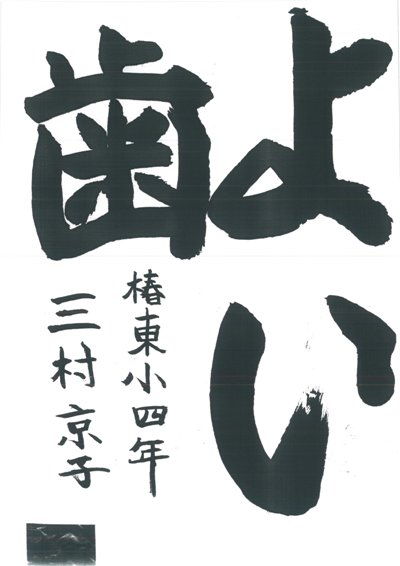 よい
歯
椿東小四年
三村京子